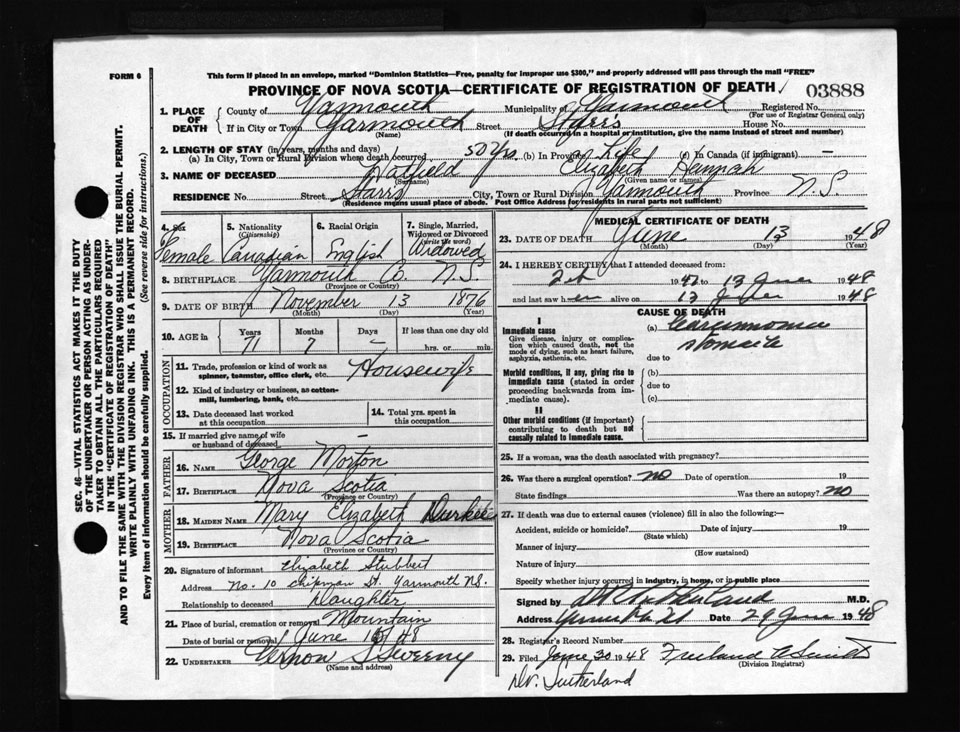 FORM 6
This form if placed in an envelope, marked "Dominion Statistics—Free, penalty for improper use $300," and properly addressed will pass through the mail "FREE"
PROVINCE OF NOVA SCOTIA—CERTIFICATE OF REGISTRATION OF DEATH
03888
SEC. 46—VITAL STATISTICS ACT MAKES IT THE DUTY
OF THE UNDERTAKER OR PERSON ACTING AS UNDER-
TAKER TO OBTAIN ALL THE PARTICULARS REQUIRED
IN THE "CERTIFICATE OF REGISTRATION OF DEATH"
AND TO FILE THE SAME WITH THE DIVISION REGISTRAR WHO SHALL ISSUE THE BURIAL PERMIT.
WRITE PLAINLY WITH UNFADING INK. THIS IS A PERMANENT RECORD.
Every item of information should be carefully supplied. (See reverse side for instructions.)
1. PLACE OF DEATH County of Yarmouth Municipality of Yarmouth Registered No.
(For use of Registrar General only)
If in City or Town Yarmouth Street Starrs House No.
(Name) (If death occurred in a hospital or institution, give the name instead of street and number)
2. LENGTH OF STAY (in years, months and days)
(a) In City, Town or Rural Division where death occurred 50 yrs (b) In Province Life (c) In Canada (if immigrant) —
3. NAME OF DECEASED Hatfield Elizabeth Hannah
(Surname) (Given name or names)
RESIDENCE No. Street Starrs City, Town or Rural Division Yarmouth Province N.S.
(Residence means usual place of abode. Post Office Address for residents in rural parts not sufficient)
4. Sex 5. Nationality (Citizenship) 6. Racial Origin 7. Single, Married, Widowed or Divorced (write the word)
Female Canadian English Widowed
8. BIRTHPLACE Yarmouth Co. N.S.
(Province or Country)
9. DATE OF BIRTH November 13 1876
(Month) (Day) (Year)
10. AGE in Years Months Days If less than one day old
71 7 – hrs. or min.
OCCUPATION
11. Trade, profession or kind of work as spinner, teamster, office clerk, etc. Housewife
12. Kind of industry or business, as cotton-mill, lumbering, bank, etc.
13. Date deceased last worked at this occupation
14. Total yrs. spent in this occupation
15. If married give name of wife or husband of deceased —
FATHER
16. NAME George Morton
17. BIRTHPLACE Nova Scotia
(Province or Country)
MOTHER
18. MAIDEN NAME Mary Elizabeth Durkee
19. BIRTHPLACE Nova Scotia
(Province or Country)
20. Signature of informant Elizabeth Stubbert
Address No. 10 Chipman St. Yarmouth N.S.
Relationship to deceased Daughter
21. Place of burial, cremation or removal Mountain
Date of burial or removal June 16/48
22. UNDERTAKER Vernon S Sweeny
(Name and address)
MEDICAL CERTIFICATE OF DEATH
23. DATE OF DEATH June 13 1948
(Month) (Day) (Year)
24. I HEREBY CERTIFY that I attended deceased from:
Feb 1947 to 13 June 1948
and last saw her alive on 13 June 1948
CAUSE OF DEATH
I
Immediate cause (a) Carcinnoma
Give disease, injury or complication which caused death, not the mode of dying, such as heart failure, asphyxia, asthenia, etc. stomach
due to
Morbid conditions, if any, giving rise to immediate cause (stated in order proceeding backwards from immediate cause). (b)
due to
(c)
II
Other morbid conditions (if important) contributing to death but not causally related to immediate cause.
25. If a woman, was the death associated with pregnancy?
26. Was there a surgical operation? no Date of operation 19
State findings Was there an autopsy? no
27. If death was due to external causes (violence) fill in also the following:—
Accident, suicide or homicide? Date of injury 19
(State which)
Manner of injury
(How sustained)
Nature of injury
Specify whether injury occurred in industry, in home, or in public place
Signed by Sutherland M.D.
Address Date 29 June 1948
28. Registrar's Record Number
29. Filed June 30 1948 Freeland
(Division Registrar)
Dr. Sutherland